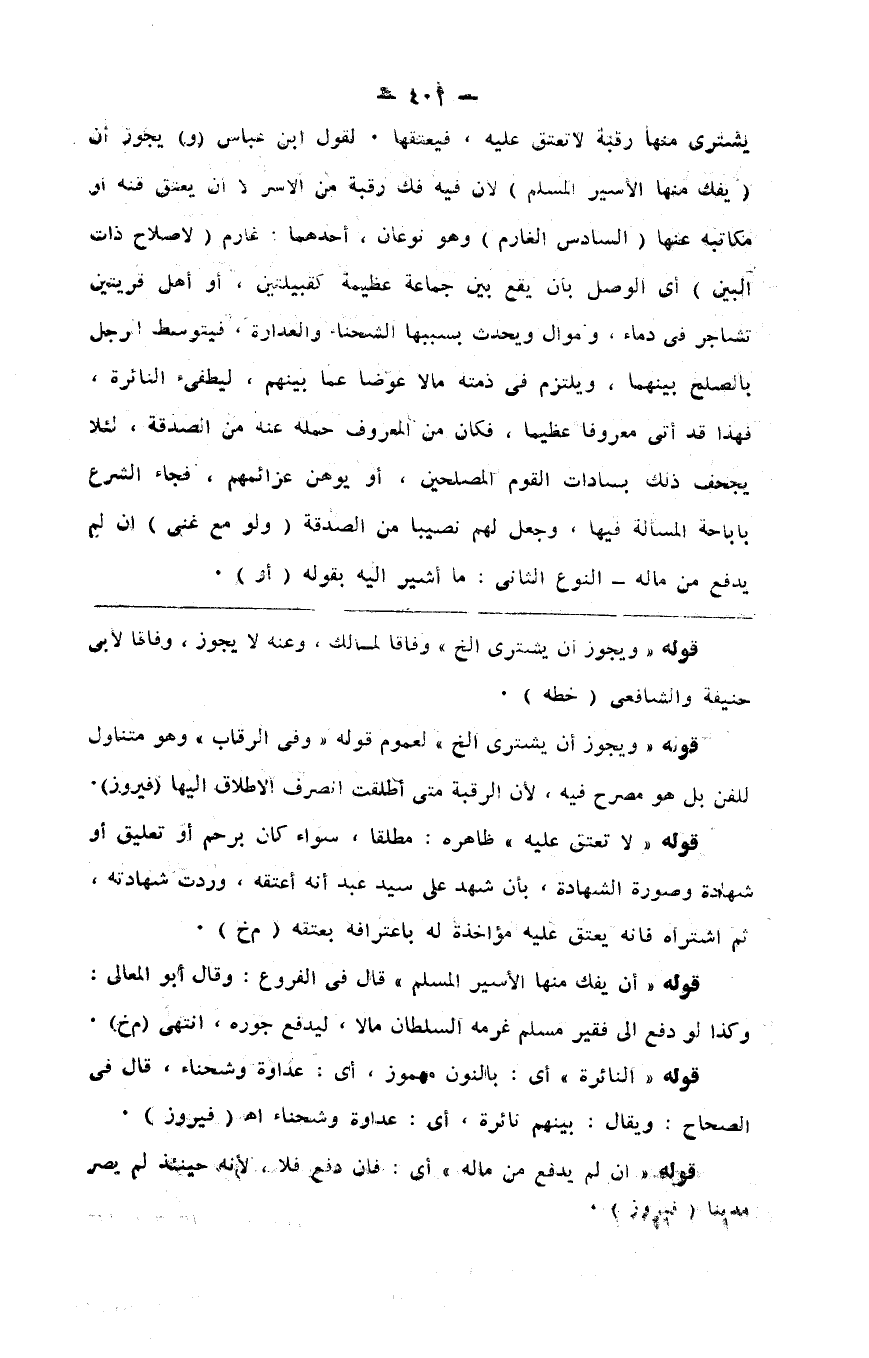 — ٤٠١ —
يشترى منها رقبة لاتعتق عليه ، فيعتقها ٠ لقول ابن عباس (و) يجوز أن
( يفك منها الأسير المسلم ) لان فيه فك رقبة من الاسر لا ان يعتق قنه او
مكاتبه عنها ( السادس الغارم ) وهو نوعان ، أحدهما : غارم ( لاصلاح ذات
البين ) أى الوصل بأن يقع بين جماعة عظيمة كقبيلتين ، أو أهل قريتين
تشاجر فى دماء ، وأموال ويحدث بسببها الشحناء والعدارة ، فيتوسط الرجل
بالصلح بينهما ، ويلتزم فى ذمته مالا عوضا عما بينهم ، ليطفىء النائرة ،
فهذا قد أتى معروفا عظيما ، فكان من المعروف حمله عنه من الصدقة ، لئلا
يجحف ذلك بسادات القوم المصلحين ، أو يوهن عزائمهم ، فجاء الشرع
باباحة المسألة فيها ، وجعل لهم نصيبا من الصدقة ( ولو مع غنى ) ان لم
يدفع من ماله — النوع الثانى : ما أشير اليه بقوله ( أو ) ٠
قوله « ويجوز أن يشترى الخ » وفاقا لمالك ، وعنه لا يجوز ، وفاقا لأبى
حنيفة والشافعى ( خطه ) ٠
قوله « ويجوز أن يشترى الخ » لعموم قوله « وفى الرقاب » وهو متناول
للفن بل هو مصرح فيه ، لأن الرقبة متى أطلقت انصرف الاطلاق اليها (فيروز)٠
قوله « لا تعتق عليه » ظاهره : مطلقا ، سواء كان برحم أو تعليق أو
شهادة وصورة الشهادة ، بأن شهد على سيد عبد أنه أعتقه ، وردت شهادته ،
ثم اشتراه فانه يعتق عليه مؤاخذة له باعترافه بعتقه ( م‌خ ) ٠
قوله « أن يفك منها الأسير المسلم » قال فى الفروع : وقال أبو المعالى :
وكذا لو دفع الى فقير مسلم غرمه السلطان مالا ، ليدفع جوره ، انتهى (م‌خ) ٠
قوله « النائرة » أى : بالنون مهموز ، أى : عداوة وشحناء ، قال فى
الصحاح : ويقال : بينهم نائرة ، أى : عداوة وشحناء اهـ ( فيروز ) ٠
قوله « ان لم يدفع من ماله » أى : فان دفع فلا ، لأنه حينئذ لم يصر
مدينا ( فيروز ) ٠